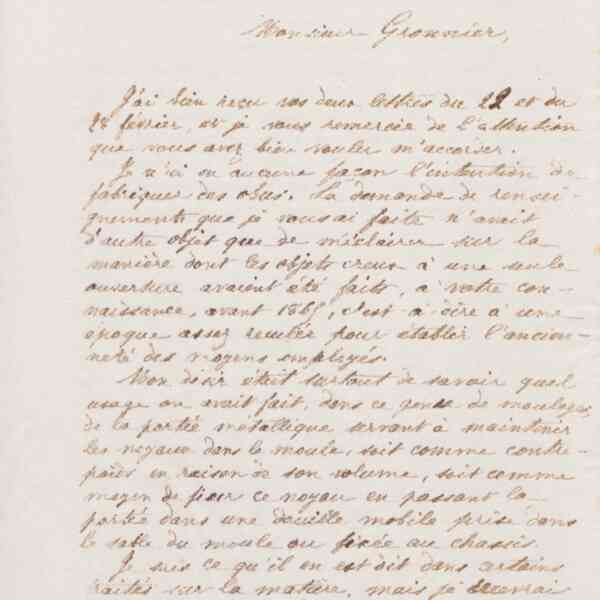 Monsieur Gronnier,
J'ai bien reçu vos deux lettres du 22 et du
28 février, et je vous remercie de l'attention
que vous avez bien voulu m'accorder.
Je n'ai en aucune façon l'intention de
fabriquer des obus. La demande de rensei-
gnements que je vous ai faite n'avait
d'autre objet que de m'éclairer sur la
manière dont les objets creux à une seule
ouverture avaient été faits, à votre con-
naissance, avant 1865, c'est à dire à une
époque assez reculée pour établir l'ancien-
neté des moyens employés.
Mon désir était surtout de savoir quel
usage on avait fait, dans ce genre de moulages,
de la portée métallique servant à maintenir
les noyaux dans le moule, soit comme contre-
poids en raison de son volume, soit comme
moyen de fixer ce noyau en passant la
portée dans une douille mobile prise dans
le sable du moule ou fixée au chassis.
Je sais ce qu'il en est dit dans certains
traités sur la matière, mais je